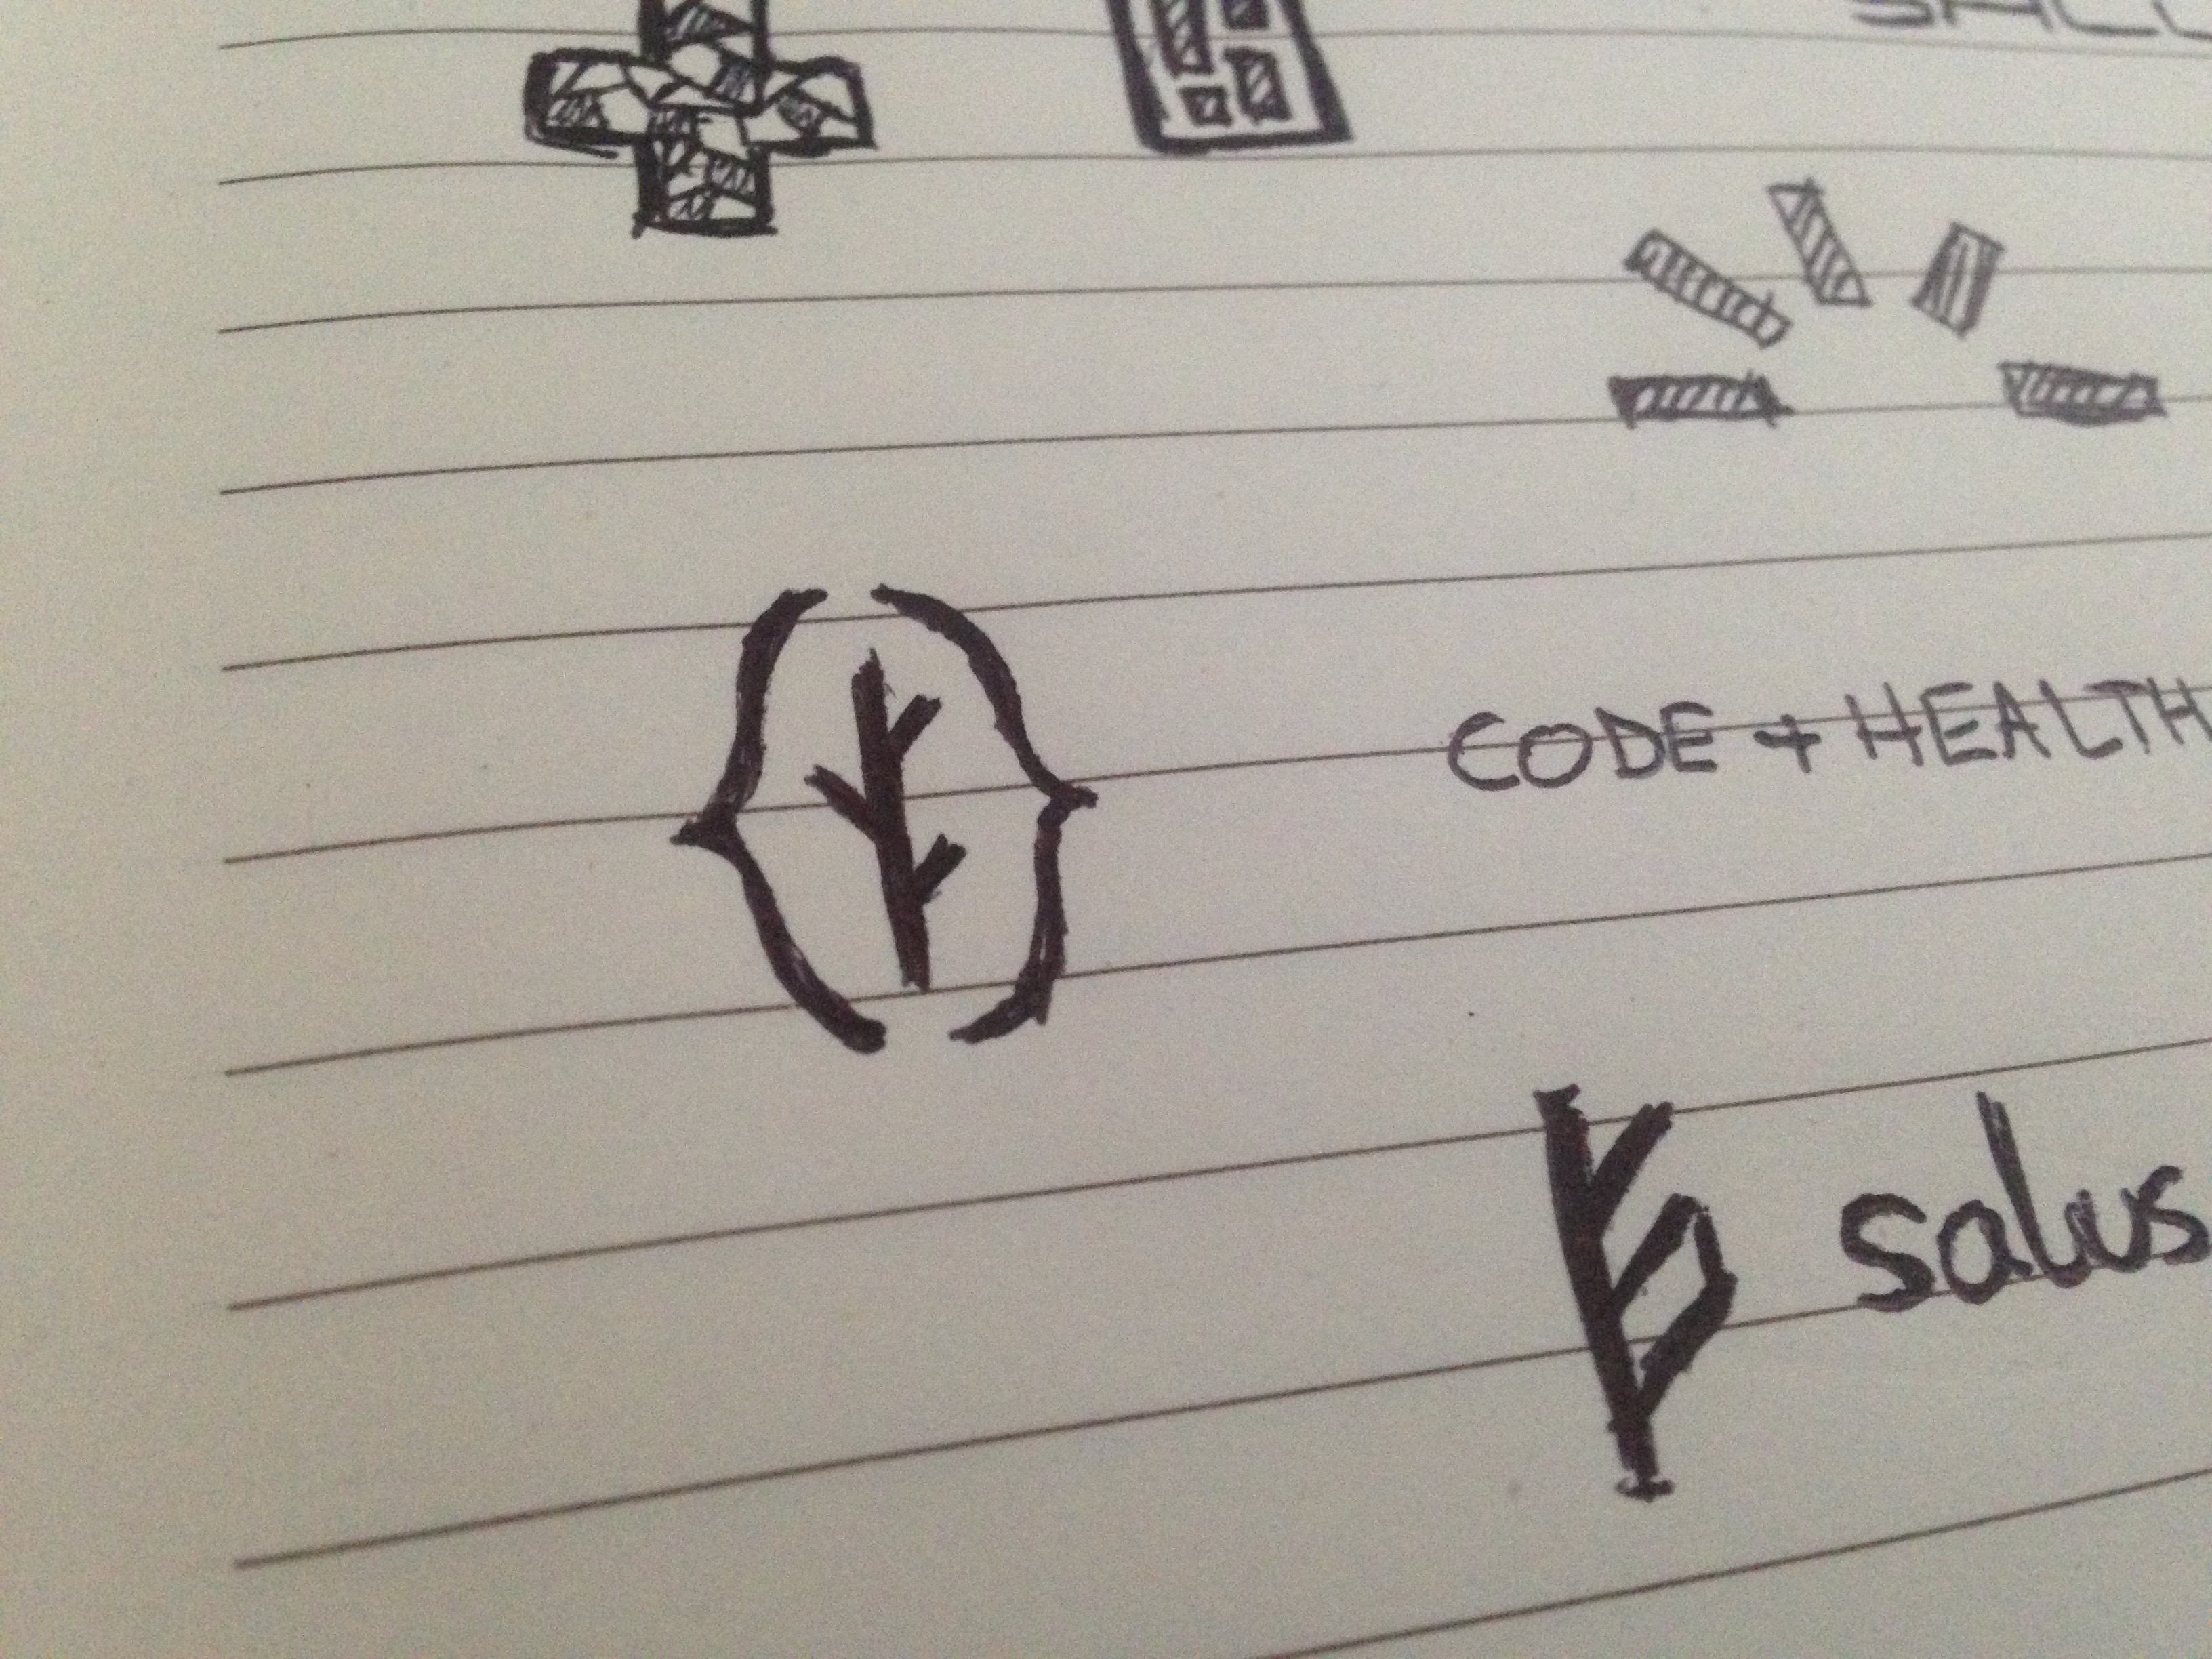 CODE + HEALTH
salus